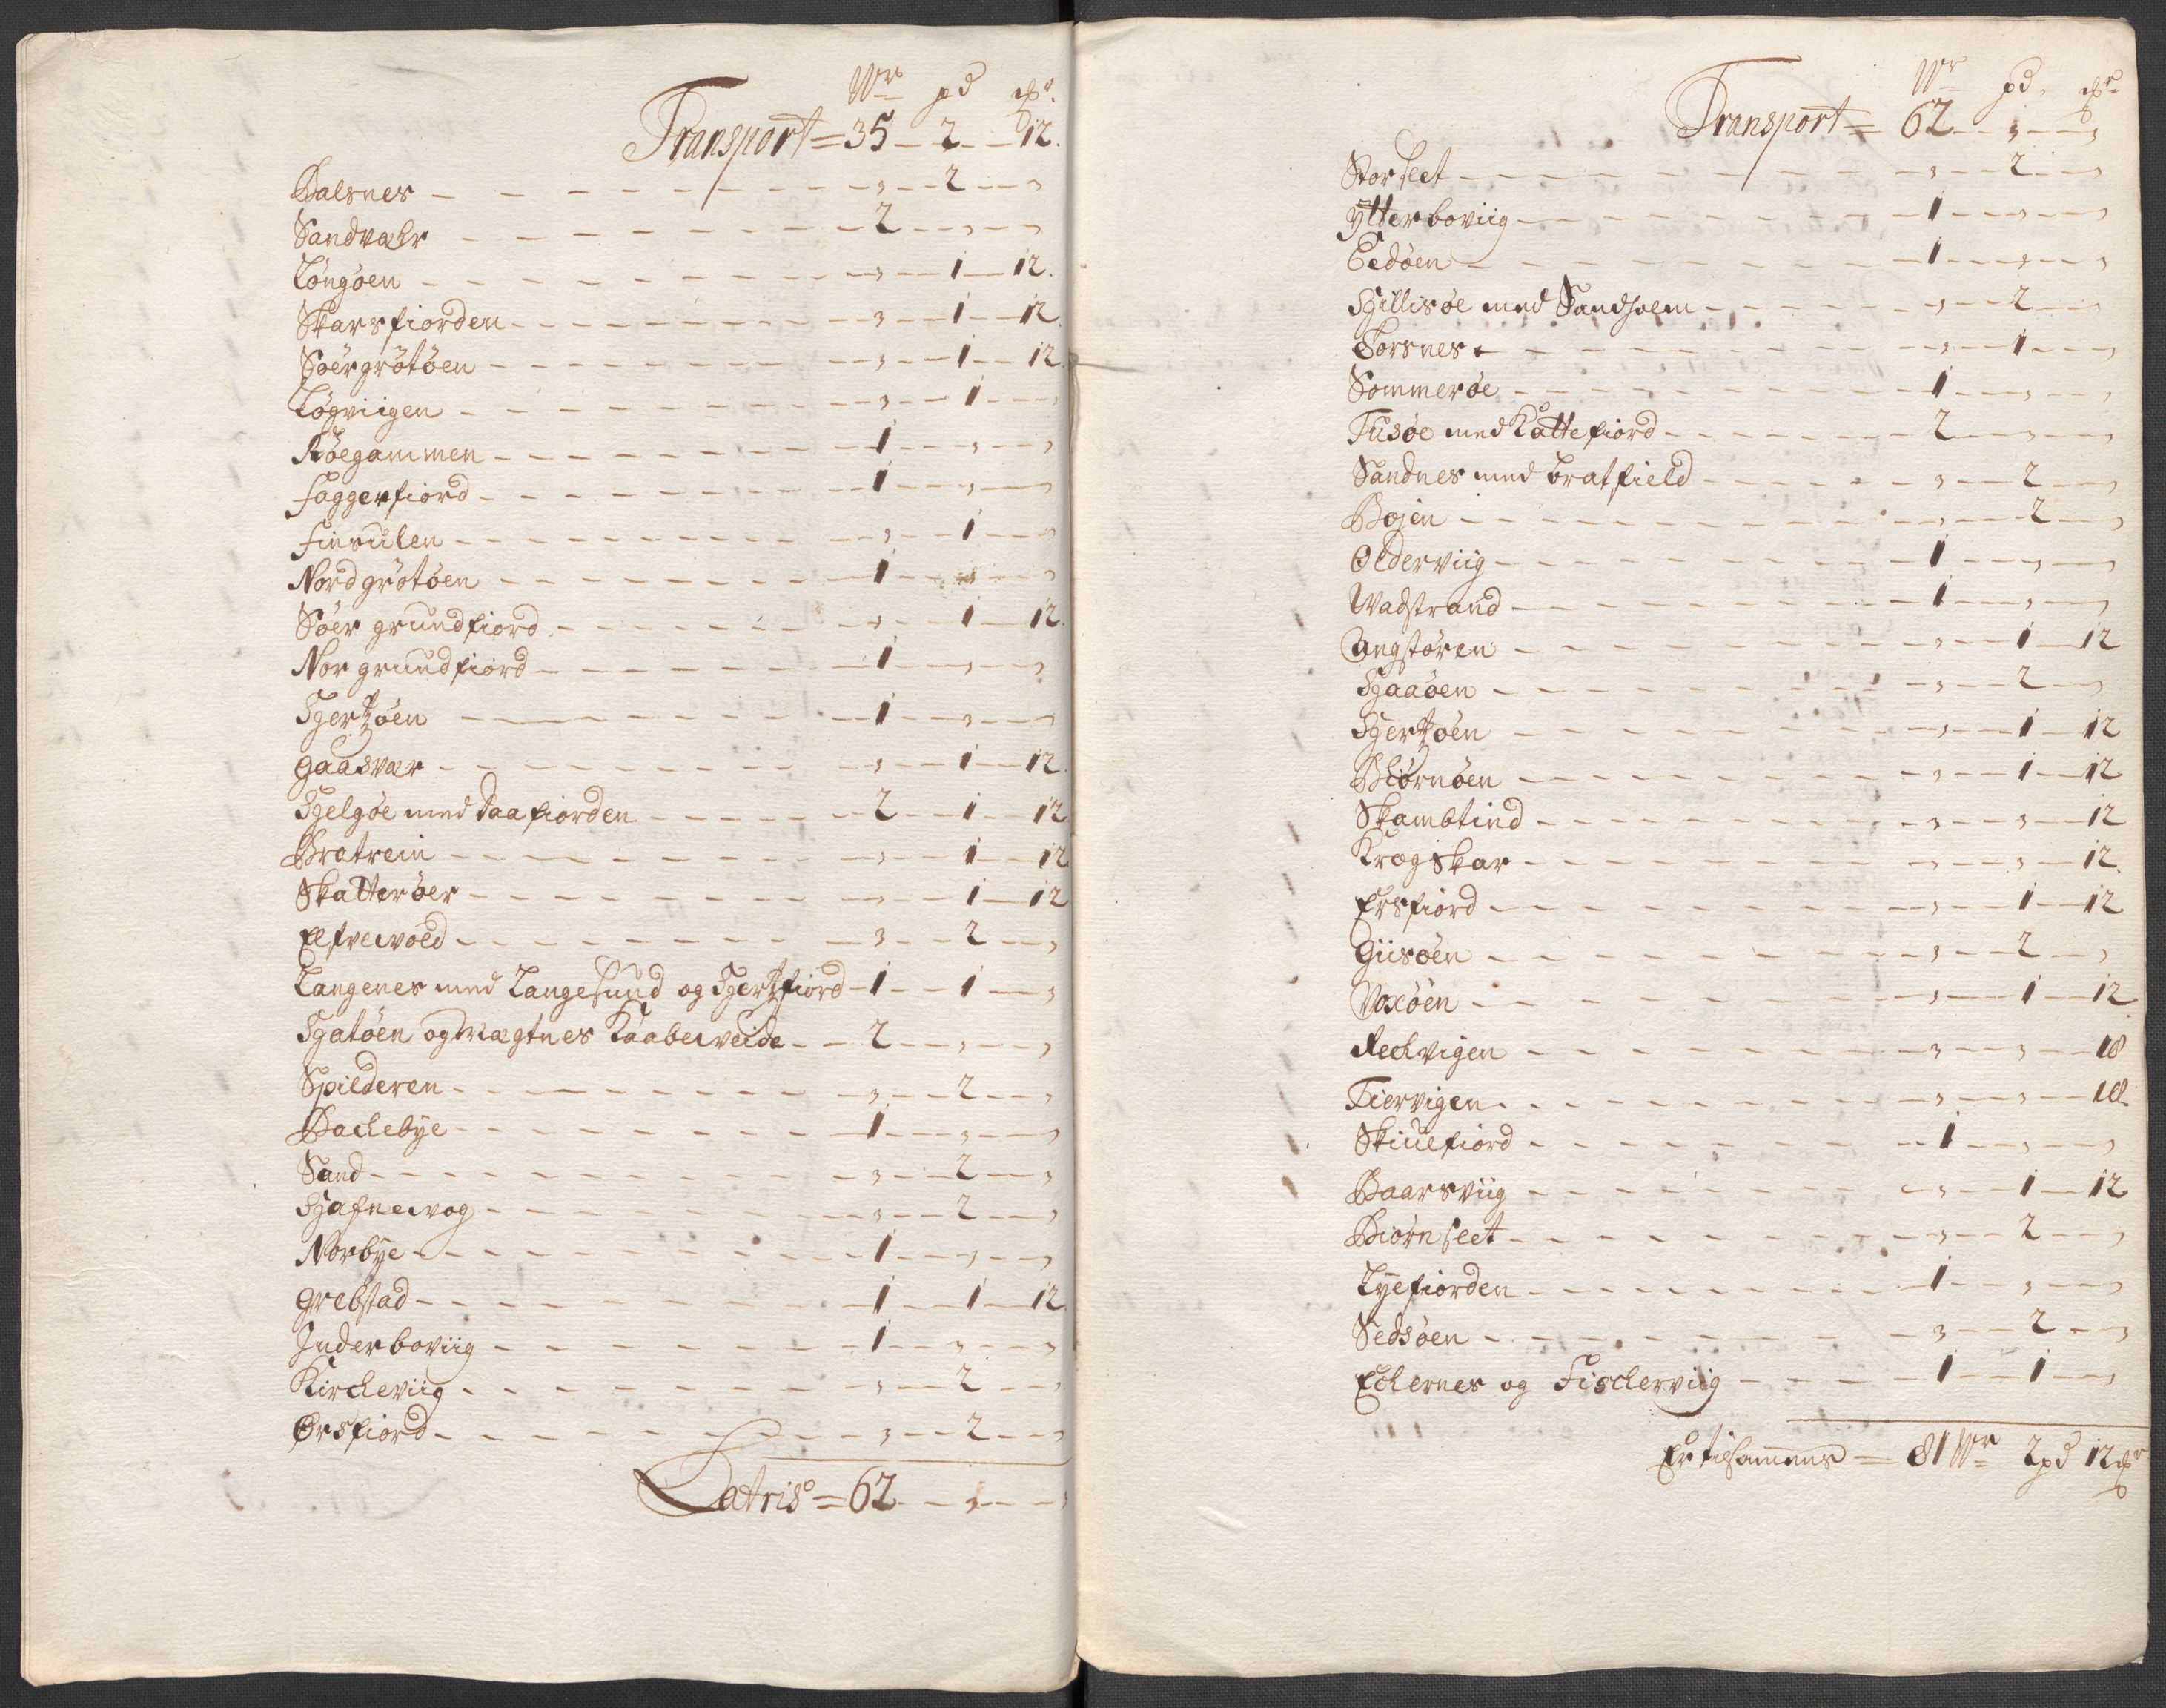 Wr pd
Transport = 35 - 2 - 12.
Balsnes - - 2 -
Sandvær - 2 - -
Longøen - - 1 - 12.
Skarsfiorden - - 1 - 12.
Søergrøtøen - - 1 - 12
Løgviigen - - 1 -
Røegammen - 1 - -
Foggerfiord - 1 - -
Finsulen - - 1 -
Nordgrøtøen - 1 - -
Søer grundfiord - - 1 - 12.
Nor grundfiord - 1 - -
Hertzøen - 1 - -
Gaasvær - - 1 - 12.
Helgøe med Daafiorden - 2 - 1 - 12
Bratrein - - 1 - 12
Skatterøer - - 1 - 12
Elfvevold - - 2 -
Langenes med Langesund og Hertzfiord - 1 - 1 -
Hatøen og Mægtnes Kaabeweide - 2 - -
Spilderen - - 2 -
Backebye - 1 - -
Sand - - 2 -
Hafnewog - - 2 -
Norbye - 1 - -
Grebstad - 1 - 1 - 12.
Inderboviig - 1 - -
Kirckeviig - - 2 -
Ørsfiord - - 2 -
Latris = 62 - -
Wr pd
Transport = 62 - -
Storsleet - - 2 -
Ytterboviig - 1 - -
Eedøen - 1 - -
Hillisøe med Sandholm - - 2 -
Torsnes - - 1 -
Sommerøe - 1 - -
Tusøe med Kattefiord - 2 - -
Sandnes med bratfield - - 2 -
Bojen - - 2 -
Olderviig - 1 - -
Wadstrand - 1 - -
Langstøren - - 1 - 12
Haaøen - - 2 -
Hertzøen - - 1 - 12
Biørnøen - - 1 - 12
Skambtind - - - 12
Krogskar - - - 12.
Ersfiord - - 1 - 12
Giisøen - - 2 -
Voxøen - - 1 - 12
Reckvigen - - - 18
Tiervigen - - - 18.
Skiuefiord - 1 - -
Baarsviig - - 1 - 12
Biørnsleet - - 2 -
Lyefiorden - 1 - -
Sedsøen - - 2 -
Eckernes og Fisckerviig - 1 - 1 -
Er tilsammens = 81 Wr 2 pd 12